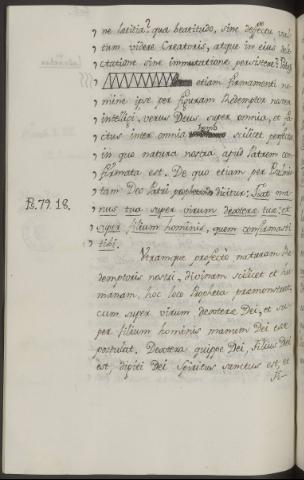 ne laetitia? qua beatitudo, sine defectu vul=
tum videre Creatoris, atque in eius dele=
ctatione sine immutatione persistere?
etiam firmamenti no=
mine ipse per figuram Redemptor noster
intelligi, verus Deus super omnia, et fa=
ctus inter omnia homo scilicet perfectus
in quo natura nostra apud Patrem con=
firmata est. De quo etiam per
tam Deo Patri dicitur: Fiat ma=
Ps. 79. 18.
nus tua super virum dexterae tuae: et
super filium hominis, quem confirmasti
tibi.
Utramque profecto naturam Re=
demptoris nostri, divinam scilicet et hu=
manam, hoc loco Propheta praemonstrat,
cum super virum dexterae Dei, et su=
per filium hominis manum Dei esse
postulat. Dextera quippe Dei, Filius Dei
est, digiti Dei Spiritus sanctus est, et
Fi=